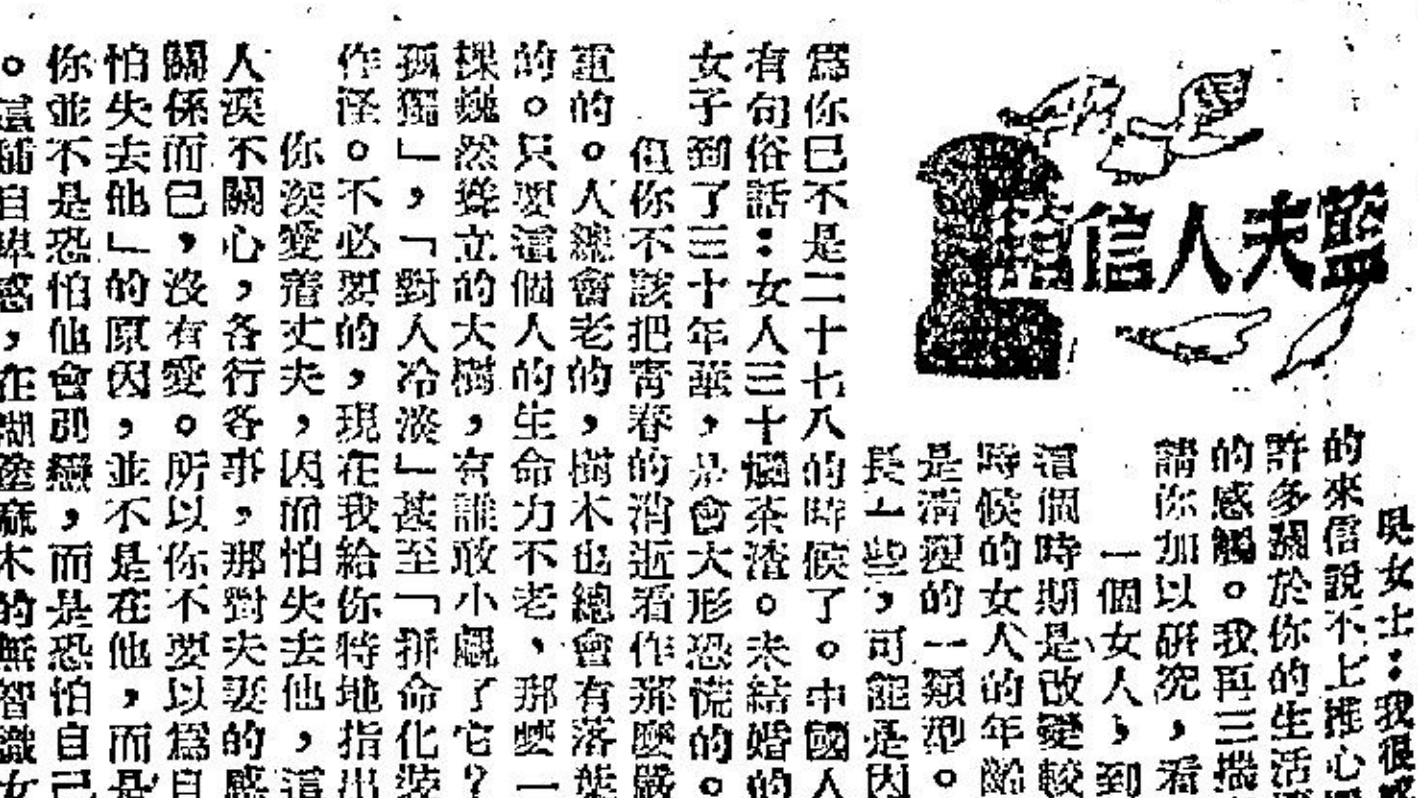 藍夫人信箱
吳女士：我很感
的來信說不上推心
許多關於你的生活
的感觸。我再三揣
請你加以硏究，看
一個女人，到
這個時期是改變較
時候的女人的年齡
是淸瘦的一類型。
長一些，可能是因
爲你已不是二十七八的時候了。中國人
有句俗話：女人三十爛茶渣。未結婚的
女子到了三十年華，是會大形恐慌的。
但你不該把靑春的消逝看作那麼嚴
重的。人總會老的，樹木也總會有落葉
的。只要這個人的生命力不老，那麼一
棵巍然聳立的大樹，有誰敢小覷了它？
孤獨」，「對人冷淡」甚至「拼命化裝
作怪。不必要的，現在我給你特地指出
你深愛着丈夫，因而怕失去他，這
人漠不關心，各行各事，那對夫妻的感
關係而已，沒有愛。所以你不要以爲自
怕失去他」的原因，並不是在他，而是
你並不是恐怕他會別戀，而是恐怕自己
。這種自卑感，在糊塗麻木的無智識女